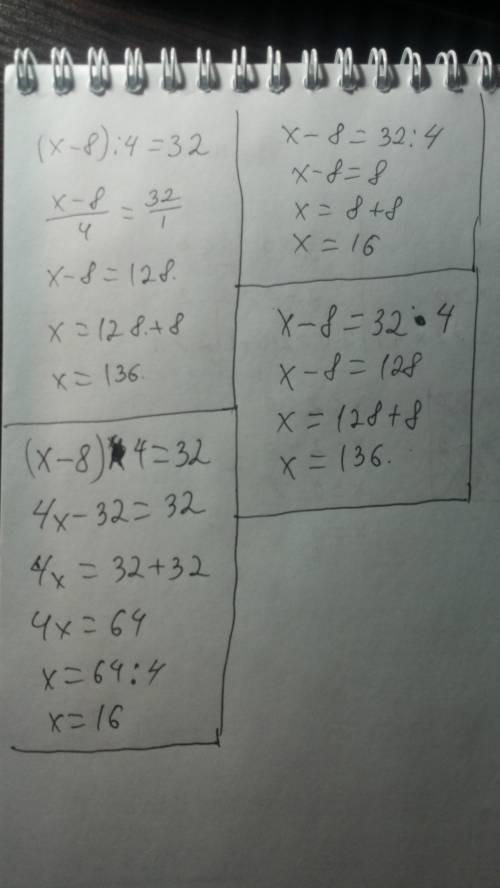 (x-8):4=32
x-8/4 = 32/1
x-8=128.
x=128+8
x=136.
x-8=32:4
x-8=8
x=8+8
x=16
x-8=32•4
x-8=128
x=128+8
x=136.
(x-8) 4=32
4x-32=32
4x=32+32
4x=64
x=64:4
x=16